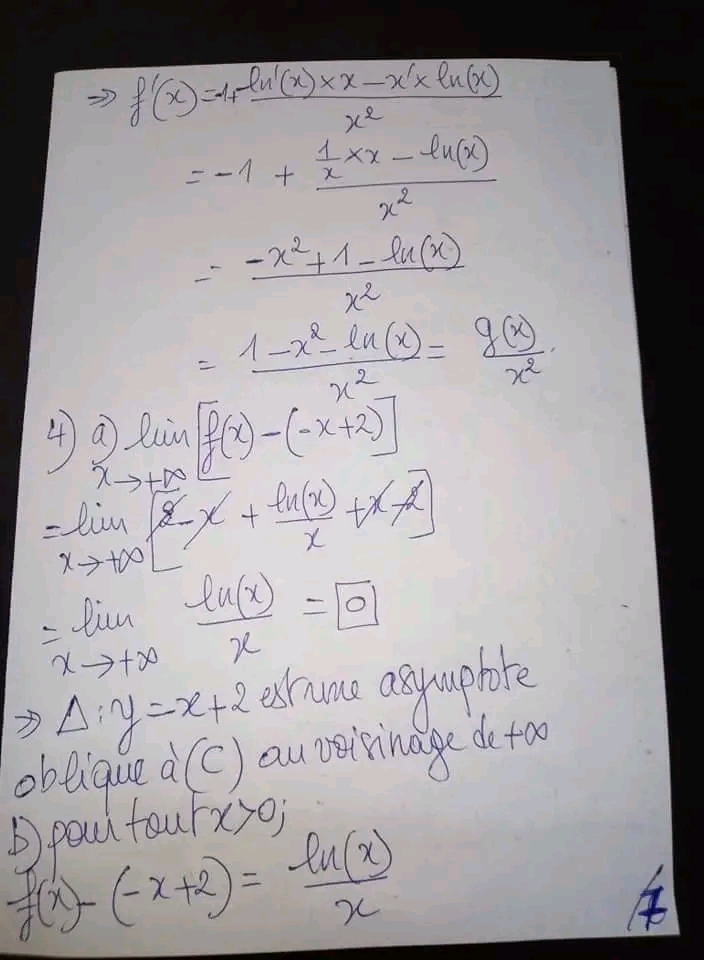 ⇒ f'(x) = -1 + (ln'(x) × x - x' × ln(x)) / x²
= -1 + (1/x × x - ln(x)) / x²
= (-x² + 1 - ln(x)) / x²
= (1 - x² - ln(x)) / x² = g(x) / x².
4) a) lim x→+∞ [f(x) - (-x+2)]
= lim x→+∞ [2 - x + ln(x)/x + x - 2]
= lim x→+∞ ln(x)/x = 0
⇒ Δ : y = x + 2 est une asymptote
oblique à (C) au voisinage de +∞
b) pour tout x > 0 ;
f(x) - (-x+2) = ln(x)/x